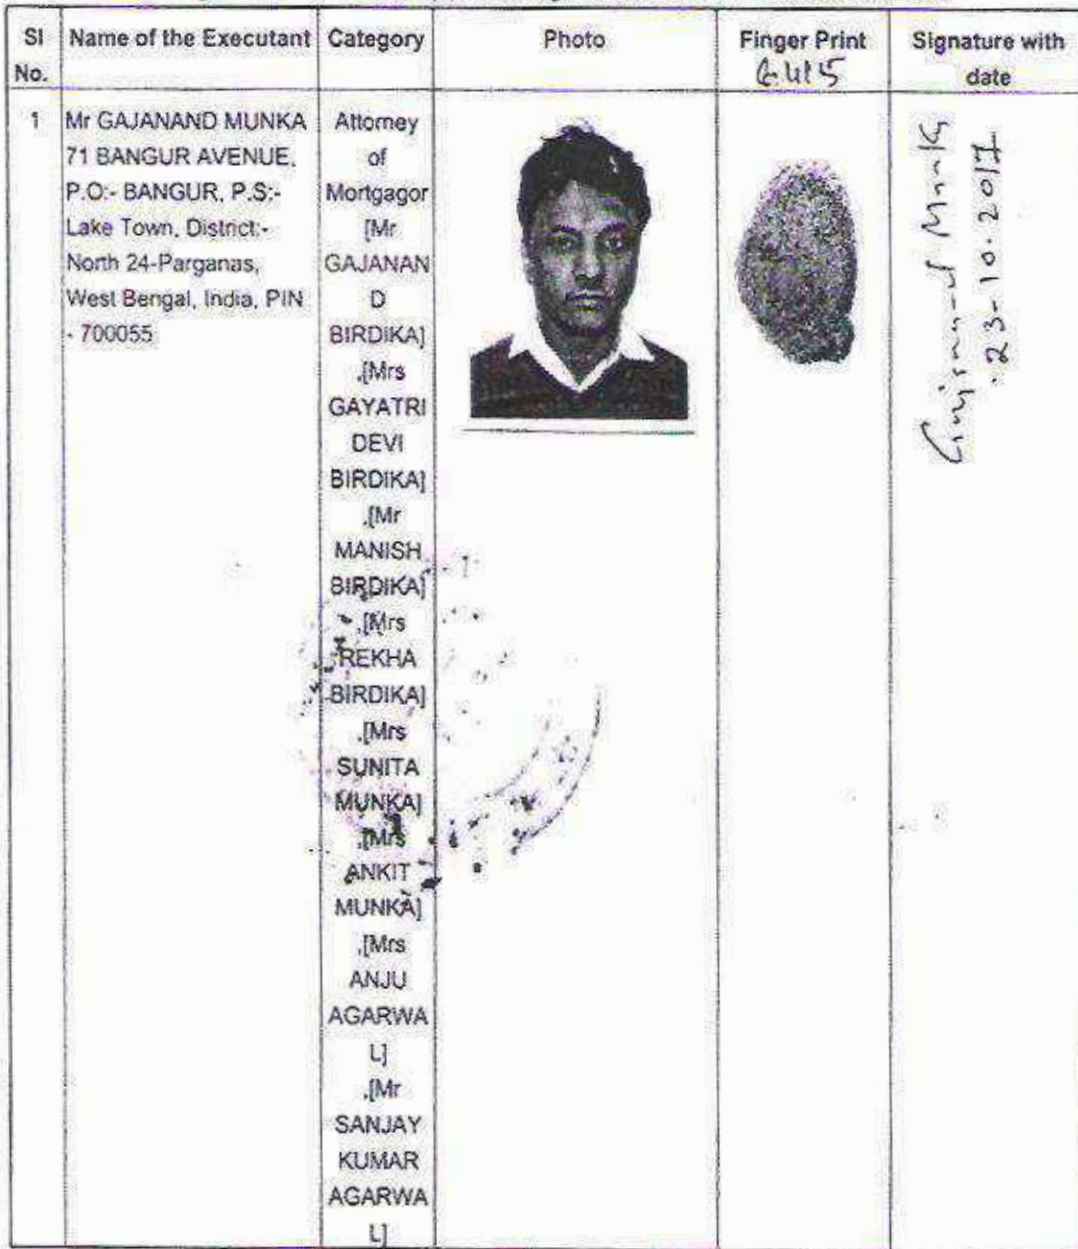 Sl No.
Name of the Executant
Category
Photo
Finger Print
6415
Signature with date
1
Mr GAJANAND MUNKA
71 BANGUR AVENUE,
P.O:- BANGUR, P.S:-
Lake Town, District:-
North 24-Parganas,
West Bengal, India, PIN
- 700055
Attorney
of
Mortgagor
[Mr
GAJANAN
D
BIRDIKA]
,[Mrs
GAYATRI
DEVI
BIRDIKA]
,[Mr
MANISH
BIRDIKA]
,[Mrs
REKHA
BIRDIKA]
,[Mrs
SUNITA
MUNKA]
,[Mrs
ANKIT
MUNKA]
,[Mrs
ANJU
AGARWA
L]
,[Mr
SANJAY
KUMAR
AGARWA
L]
Gajanand Munka
23-10-2017